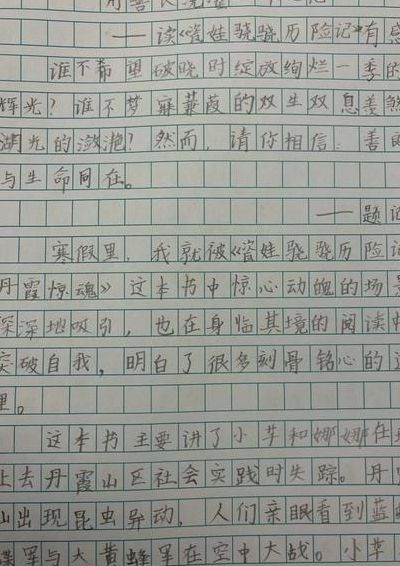 用善良浇灌
——读《瓷娃骁骁历险记》有感
谁不希望破晓时绽放绚烂一季的
辉光？谁不梦寐蒹葭的双生双息羡煞
湖光的潋滟？然而，请你相信：善的
与生命同在。
——题记
寒假里，我就被《瓷娃骁骁历险记
丹霞惊魂》这本书中惊心动魄的场景
深深地吸引，也在身临其境的阅读
突破自我，明白了很多刻骨铭心的道
理。
这本书主要讲了小芊和娜娜在
上去丹霞山区社会实践时失踪。丹
山出现昆虫异动，人们亲眼看到蓝
军与大黄蜂军在空中大战。小芊